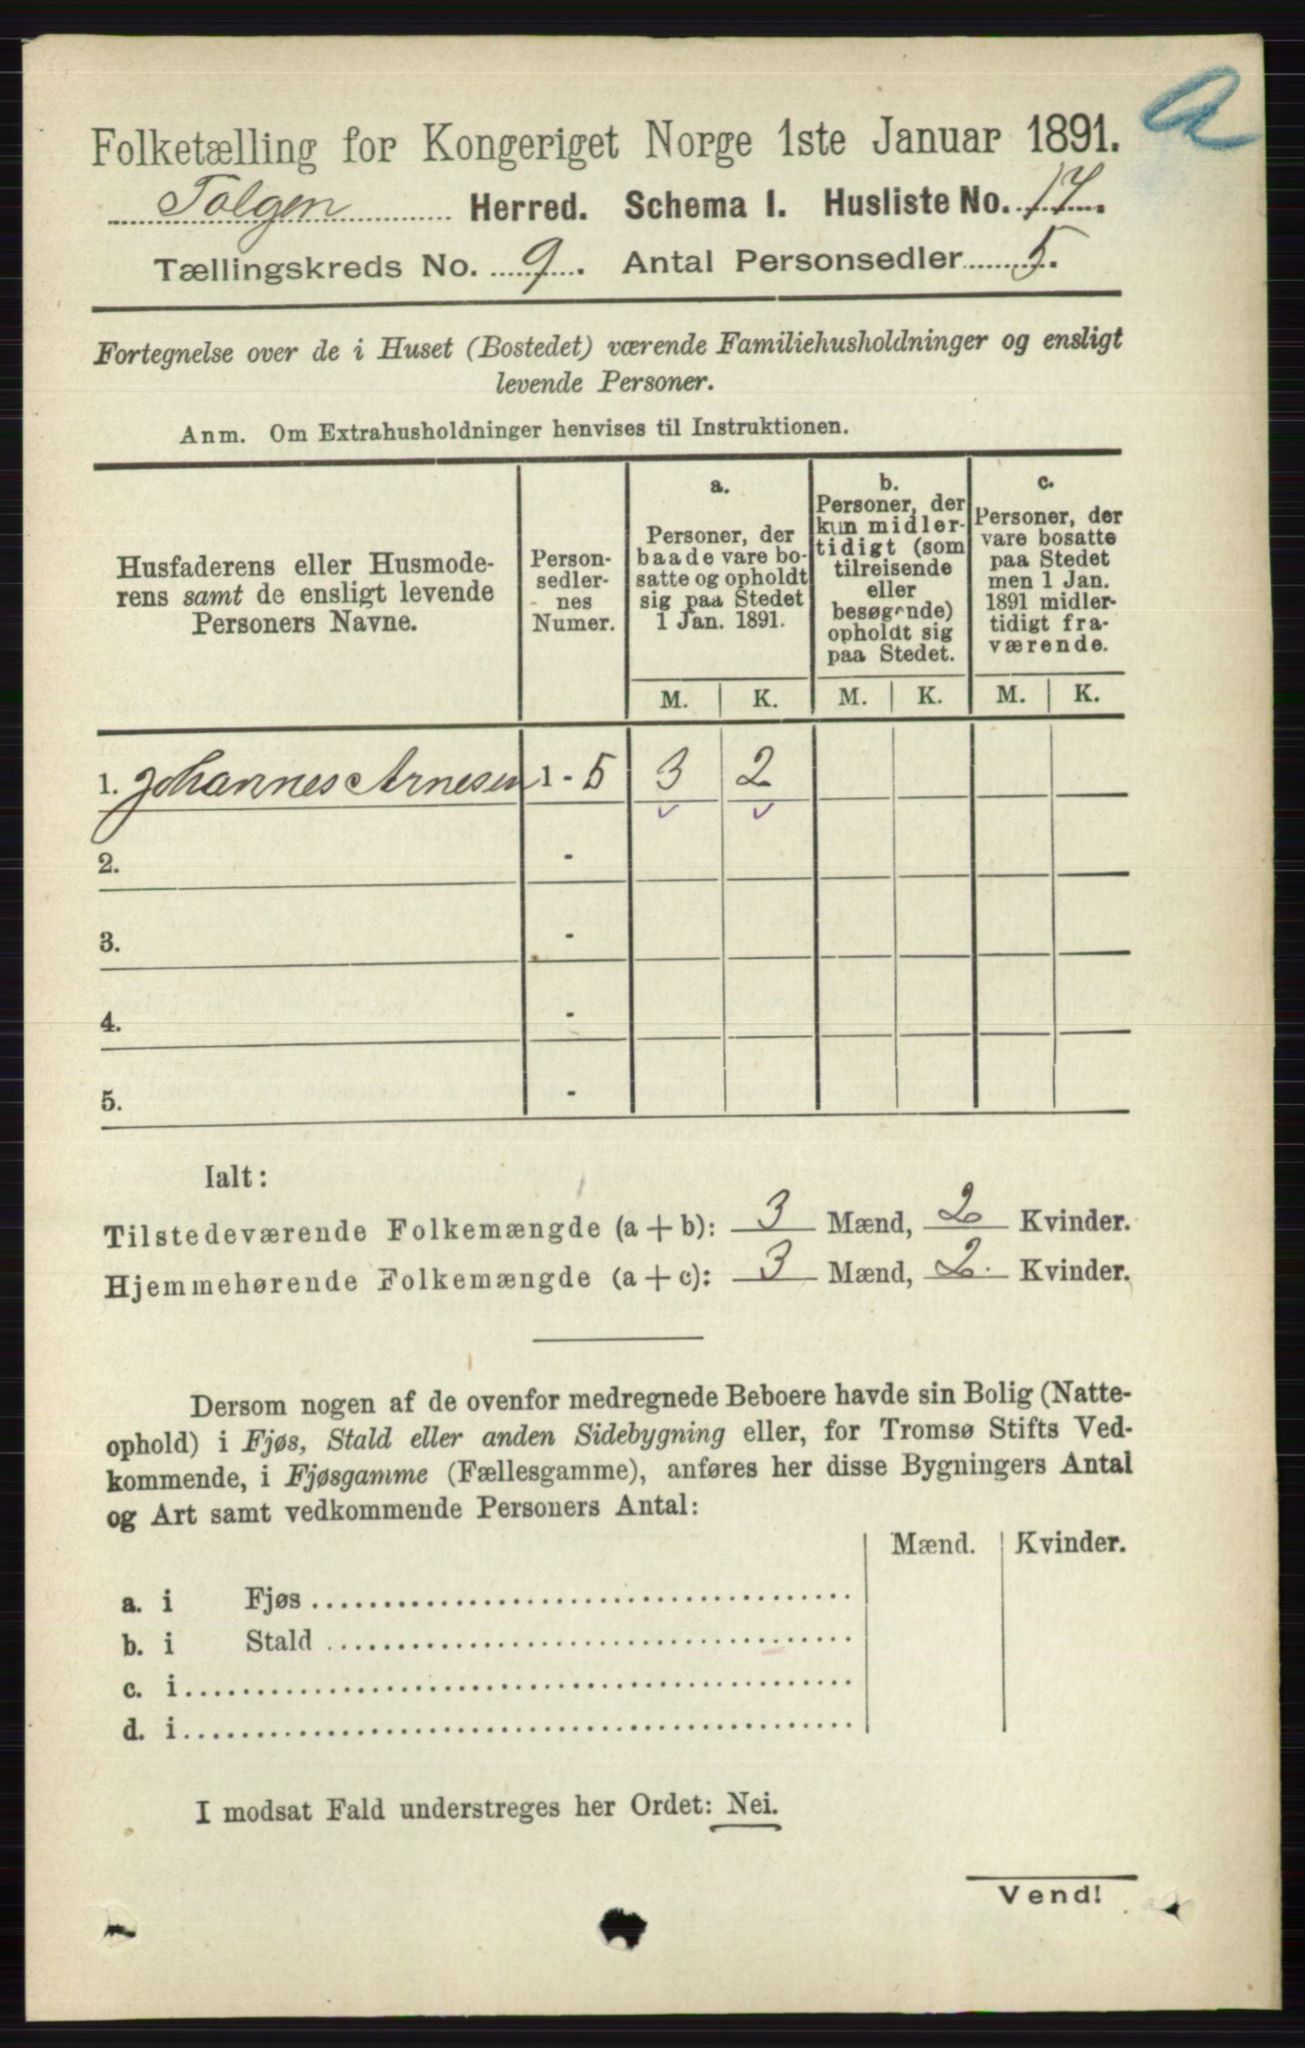 a
Folketælling for Kongeriget Norge 1ste Januar 1891.
Tolgen Herred. Schema I. Husliste No. 17.
Tællingskreds No. 9. Antal Personsedler 5.
Fortegnelse over de i Huset (Bostedet) værende Familiehusholdninger og ensligt
levende Personer.
Anm. Om Extrahusholdninger henvises til Instruktionen.
Husfaderens eller Husmode-
rens samt de ensligt levende
Personers Navne.
Person-
sedler-
nes
Numer.
a.
Personer, der
baade vare bo-
satte og opholdt
sig paa Stedet
1 Jan. 1891.
b.
Personer, der
kun midler-
tidigt (som
tilreisende
eller
besøgende)
opholdt sig
paa Stedet.
c.
Personer, der
vare bosatte
paa Stedet
men 1 Jan.
1891 midler-
tidigt fra-
værende.
M. K. M. K. M. K.
1. Johannes Arnesen 1 - 5 3 2
2. -
3. -
4. -
5. -
Ialt:
Tilstedeværende Folkemængde (a + b): 3 Mænd, 2 Kvinder.
Hjemmehørende Folkemængde (a + c): 3 Mænd, 2. Kvinder.
Dersom nogen af de ovenfor medregnede Beboere havde sin Bolig (Natte-
ophold) i Fjøs, Stald eller anden Sidebygning eller, for Tromsø Stifts Ved-
kommende, i Fjøsgamme (Fællesgamme), anføres her disse Bygningers Antal
og Art samt vedkommende Personers Antal:
Mænd. Kvinder.
a. i Fjøs
b. i Stald
c. i
d. i
I modsat Fald understreges her Ordet: Nei.
Vend!